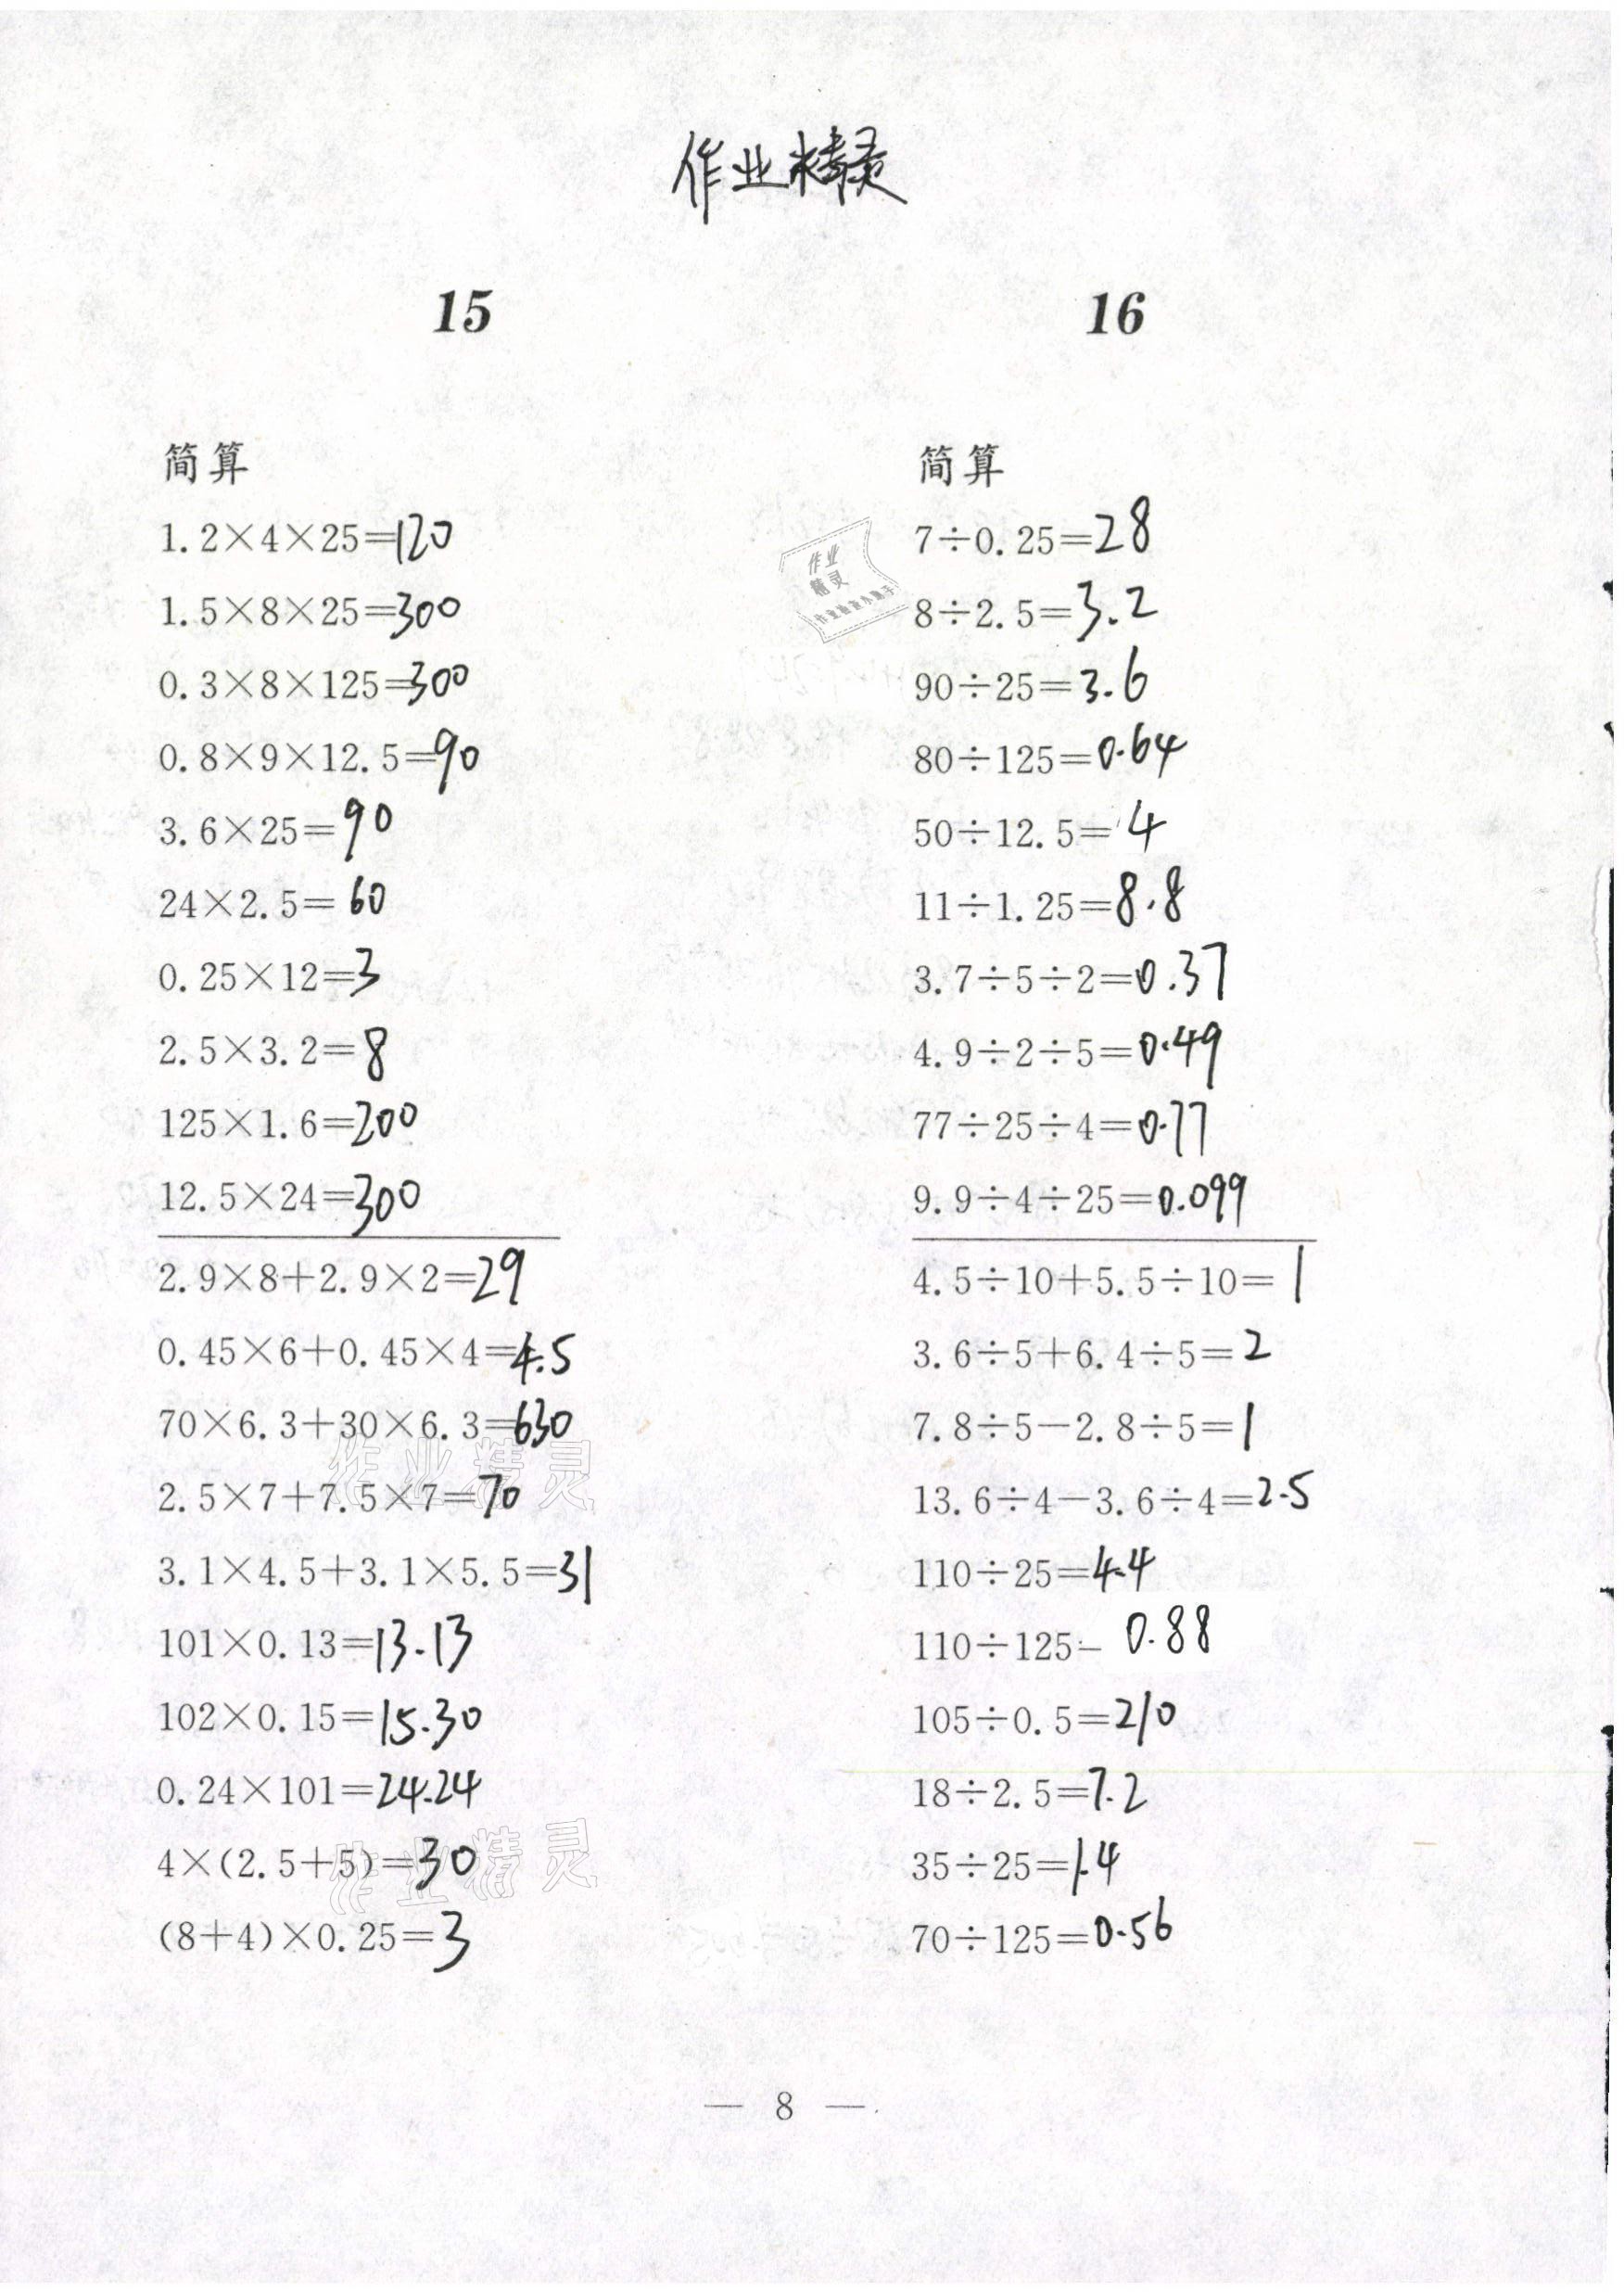 作业精灵
15
简算
1.2×4×25=120
1.5×8×25=300
0.3×8×125=300
0.8×9×12.5=90
3.6×25=90
24×2.5=60
0.25×12=3
2.5×3.2=8
125×1.6=200
12.5×24=300
2.9×8+2.9×2=29
0.45×6+0.45×4=4.5
70×6.3+30×6.3=630
2.5×7+7.5×7=70
3.1×4.5+3.1×5.5=31
101×0.13=13.13
102×0.15=15.30
0.24×101=24.24
4×(2.5+5)=30
(8+4)×0.25=3
16
简算
7÷0.25=28
8÷2.5=3.2
90÷25=3.6
80÷125=0.64
50÷12.5=4
11÷1.25=8.8
3.7÷5÷2=0.37
4.9÷2÷5=0.49
77÷25÷4=0.77
9.9÷4÷25=0.099
4.5÷10+5.5÷10=1
3.6÷5+6.4÷5=2
7.8÷5-2.8÷5=1
13.6÷4-3.6÷4=2.5
110÷25=4.4
110÷125- 0.88
105÷0.5=210
18÷2.5=7.2
35÷25=1.4
70÷125=0.56
作业
精灵
作业精灵
作业精灵
— 8 —